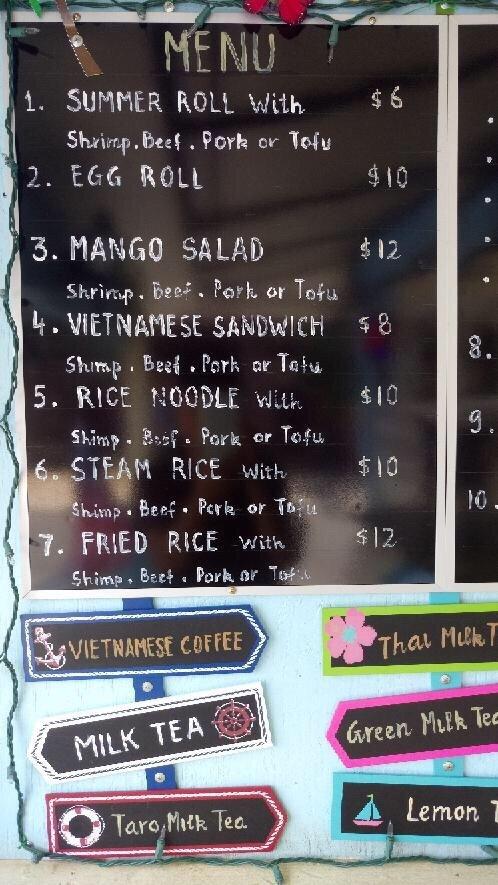 MENU
1. SUMMER ROLL with $6
Shrimp. Beef. Pork or Tofu
2. EGG ROLL $10
3. MANGO SALAD $12
Shrimp. Beef. Pork or Tofu
4. VIETNAMESE SANDWICH $8
Shimp. Beef. Pork or Tofu
5. RICE NOODLE with $10
Shimp. Beef. Pork or Tofu
6. STEAM RICE with $10
Shimp. Beef. Pork or Tofu
7. FRIED RICE with $12
Shimp. Beef. Pork or Tofu
8.
9.
10.
VIETNAMESE COFFEE
MILK TEA
Taro Milk Tea
Thai Milk T
Green Milk Te
Lemon T